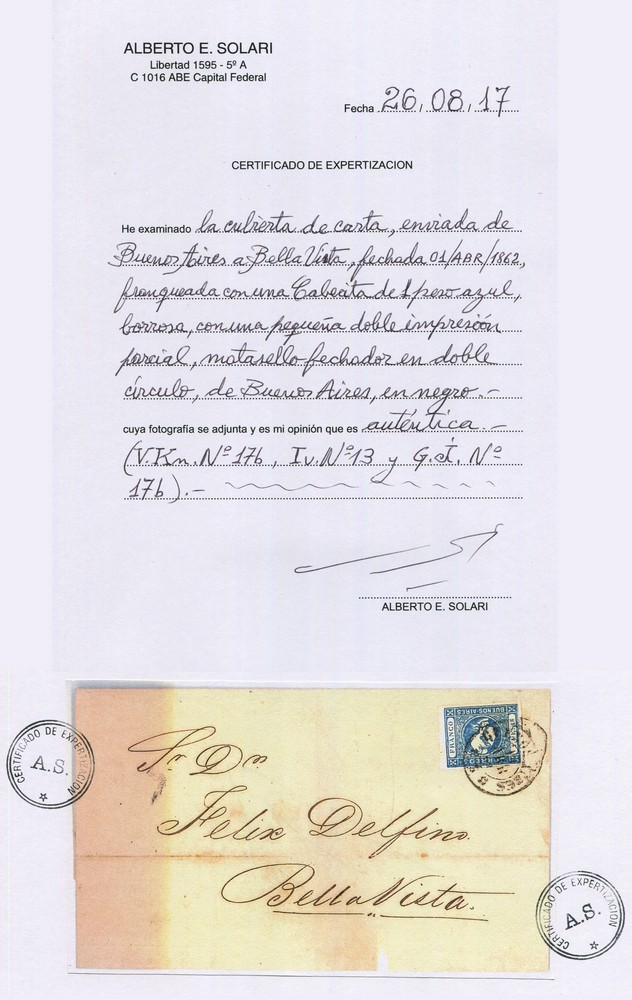 ALBERTO E. SOLARI
Libertad 1595 - 5º A
C 1016 ABE Capital Federal
Fecha 26, 08, 17
CERTIFICADO DE EXPERTIZACION
He examinado la cubierta de carta, enviada de
Buenos Aires a Bella Vista, fechada 01/ABR/1862,
franqueada con una Cabecita de 1 peso azul,
borrosa, con una pequeña doble impresión
parcial, matasello fechador en doble
círculo, de Buenos Aires, en negro.-
cuya fotografía se adjunta y es mi opinión que es auténtica.-
(V.Kn. Nº 17b, Iv. Nº 13 y G.J. Nº
17b).-
ALBERTO E. SOLARI
CERTIFICADO DE EXPERTIZACION
A.S.
BUENOS AIRES
FRANCO
CORREOS
Sr. Dn
Felix Delfino.
Bella Vista.
CERTIFICADO DE EXPERTIZACION
A.S.